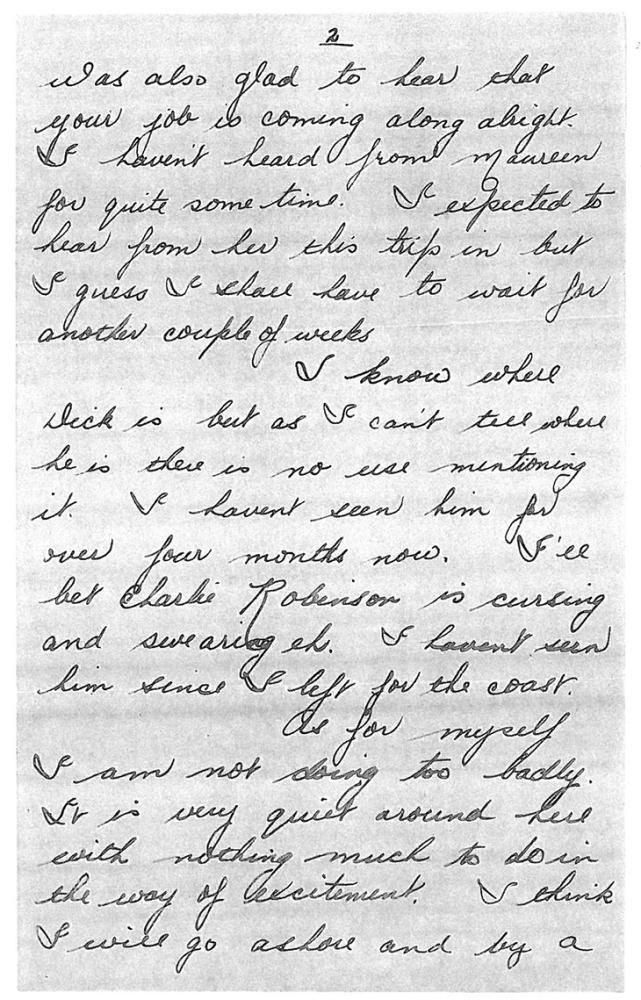 2
was also glad to hear that
your job is coming along alright.
I haven't heard from Maureen
for quite some time. I expected to
hear from her this trip in but
I guess I shall have to wait for
another couple of weeks
I know where
Dick is but as I can't tell where
he is there is no use mentioning
it. I havent seen him for
over four months now. I'll
bet Charlie Robinson is cursing
and swearing eh. I havent seen
him since I left for the coast.
As for myself
I am not doing too badly.
It is very quiet around here
with nothing much to do in
the way of excitement. I think
I will go ashore and by a